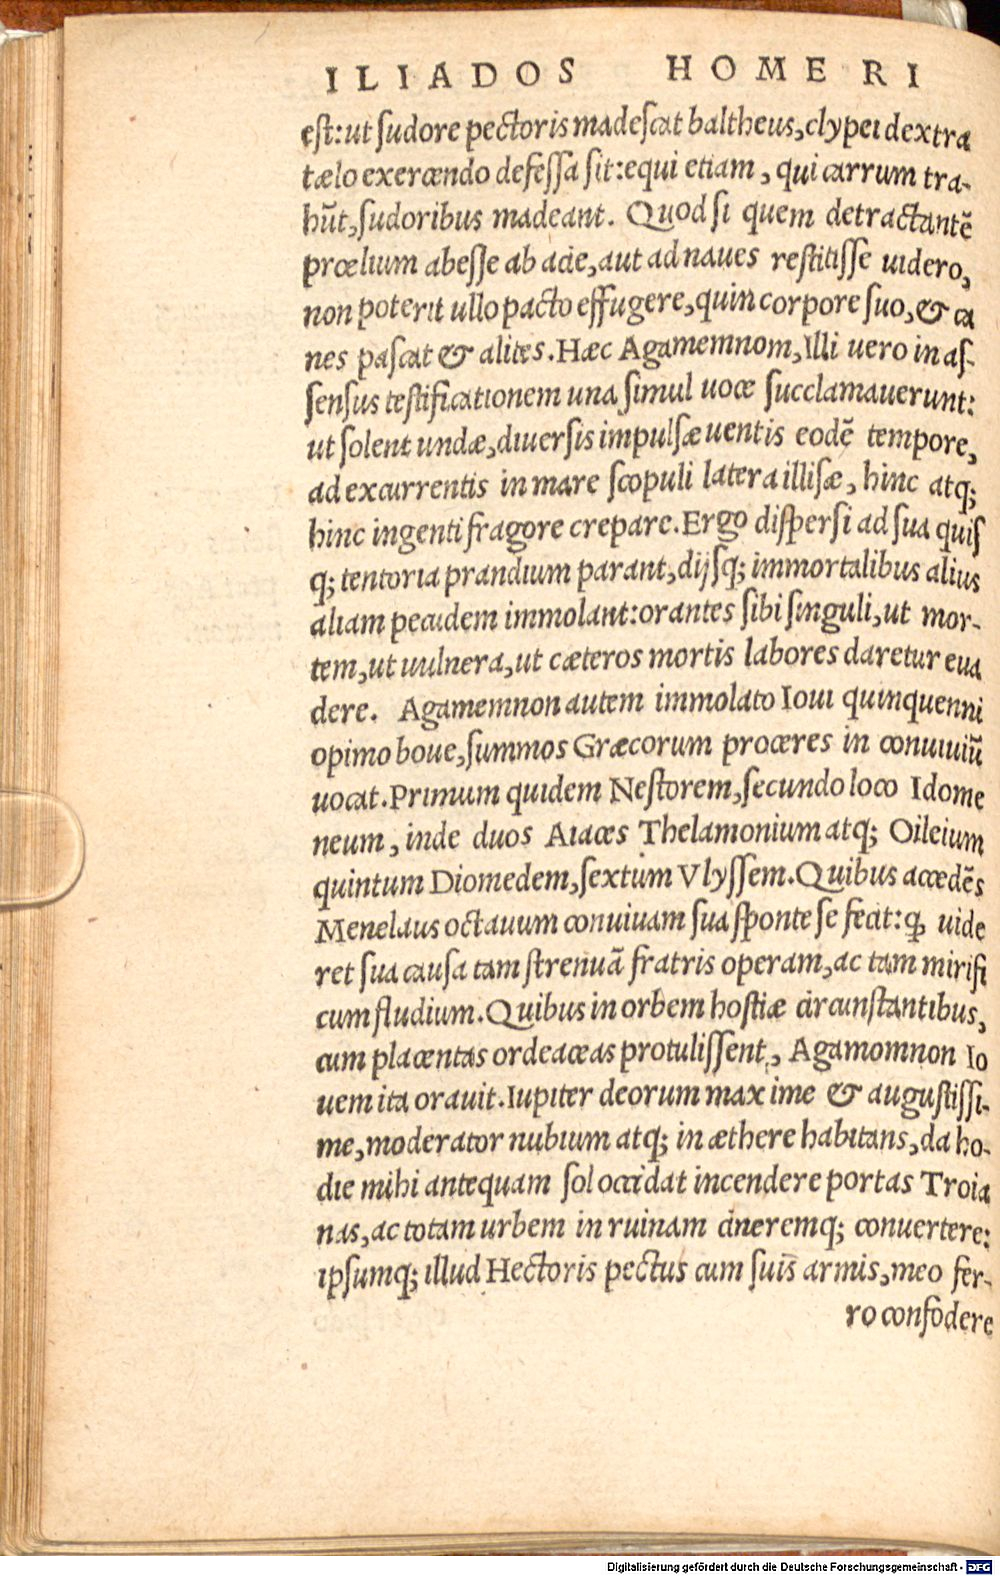 ILIADOS HOMERI
est: ut sudore pectoris madescat baltheus, clypei dextra
tælo exercendo defessa sit: equi etiam, qui carrum tra-
hūt, sudoribus madeant. Quod si quem detractantē
prœlium abesse ab acie, aut ad naues restitisse uidero,
non poterit ullo pacto effugere, quin corpore suo, & ca
nes pascat & alites. Hæc Agamemnom, Illi uero in as-
sensus testificationem una simul uoce succlamauerunt:
ut solent undæ, diuersis impulsæ uentis eodē tempore,
ad excurrentis in mare scopuli latera illisæ, hinc atq;
hinc ingenti fragore crepare. Ergo dispersi ad sua quis
q; tentoria prandium parant, dijsq; immortalibus alius
aliam pecudem immolant: orantes sibi singuli, ut mor-
tem, ut uulnera, ut cæteros mortis labores daretur eua
dere. Agamemnon autem immolato Ioui quinquenni
opimo boue, summos Græcorum proceres in conuiuiū
uocat. Primum quidem Nestorem, secundo loco Idome
neum, inde duos Aiaces Thelamonium atq; Oileium
quintum Diomedem, sextum Vlyssem. Quibus accedēs
Menelaus octauum conuiuam sua sponte se fecit: ꝙ uide
ret sua causa tam strenuā fratris operam, ac tam mirifi
cum studium. Quibus in orbem hostiæ circunstantibus,
cum placentas ordeaceas protulissent, Agamomnon Io
uem ita orauit. Iupiter deorum maxime & augustissi-
me, moderator nubium atq; in æthere habitans, da ho-
die mihi antequam sol occidat incendere portas Troia
nas, ac totam urbem in ruinam cineremq; conuertere:
ipsumq; illud Hectoris pectus cum suis armis, meo fer-
ro confodere
Digitalisierung gefördert durch die Deutsche Forschungsgemeinschaft - DFG